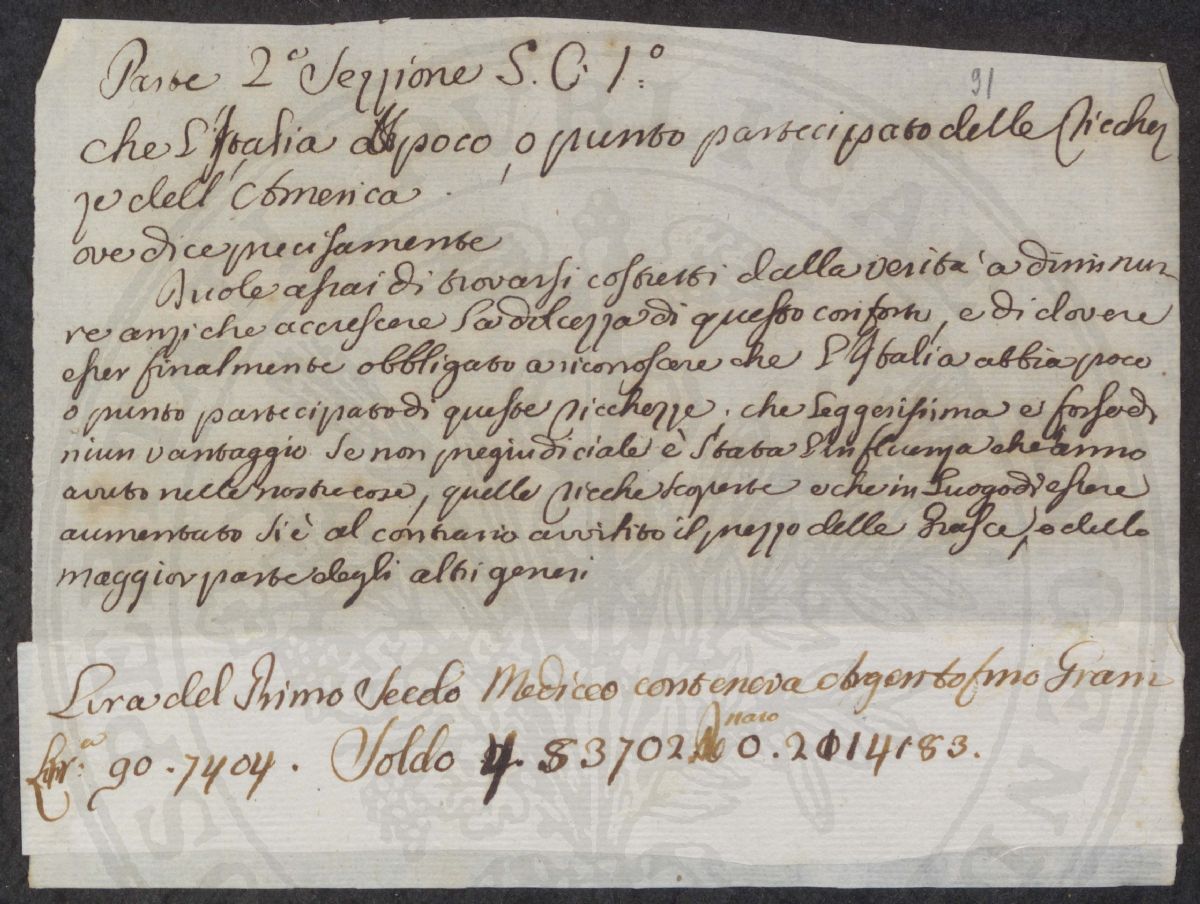 Parte 2.a Sezzione S. C. 1.o
91
che L'Italia à poco, o punto partecipato delle Ricchez
ze dell'America
ove dice precisamente
Duole assai di trovarsi costretti dalla verità a diminui-
re anziche accrescere La dolcezza di questo conforto, e di dovere
esser finalmente obbligato a riconoscere che L'Italia abbia poco
o punto partecipato di queste ricchezze, che Leggerissima e forse di
niun vantaggio se non pregiudiciale è stata L'influenza che anno
avuto nelle nostre cose, quelle ricche scoperte e che in Luogo di essere
aumentato si è al contrario avvilito il prezzo delle Grasce, e della
maggior parte degli altri generi
Lira del Primo Secolo Mediceo conteneva Argento fino Grani
Lir.a 90.7404. Soldo 4.53702. Denaro 0.2114183.